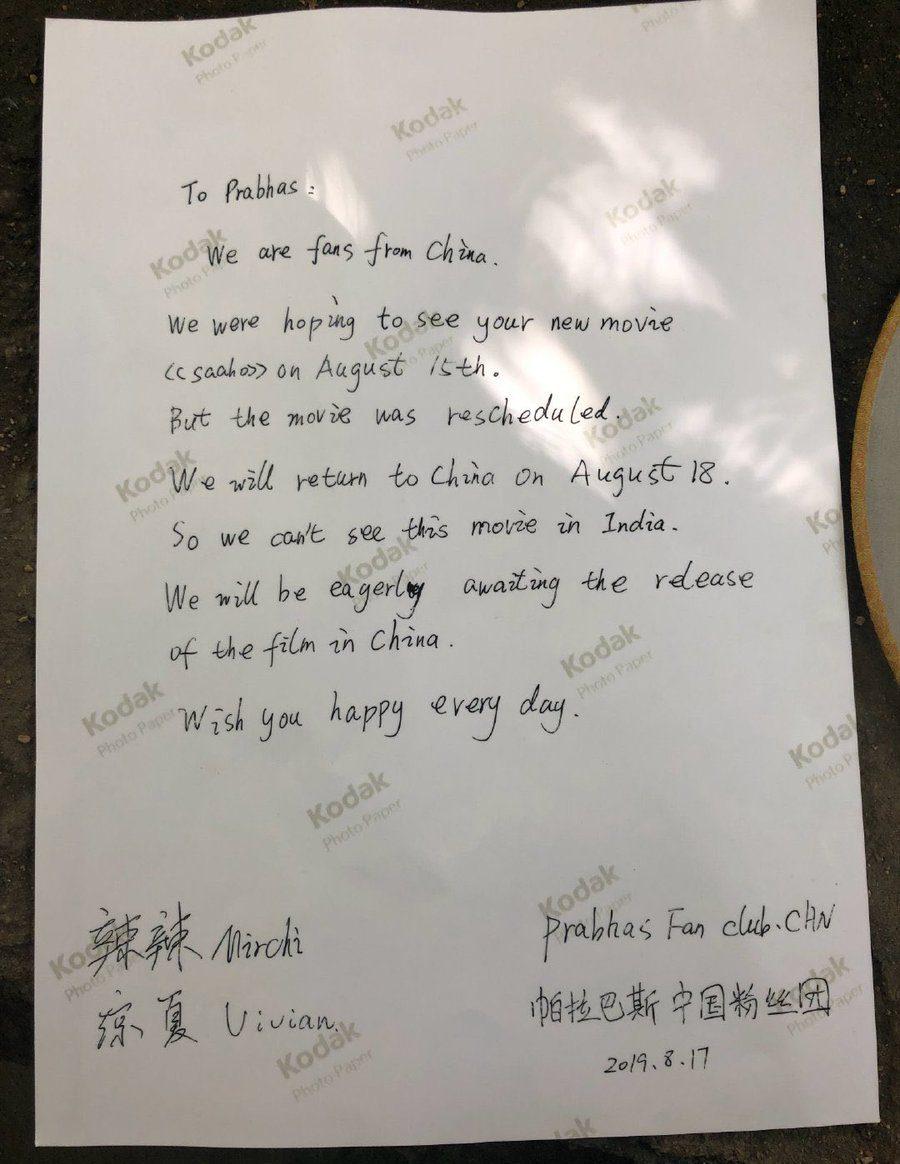 To Prabhas:
We are fans from China.
We were hoping to see your new movie
<<saaho>> on August 15th.
But the movie was rescheduled.
We will return to China on August 18.
So we can't see this movie in India.
We will be eagerly awaiting the release
of the film in China.
Wish you happy every day.
辣辣 Mirchi
夏 Vivian
Prabhas Fan club.CHN
帕拉巴斯 中国粉丝团
2019.8.17
Kodak
Photo Paper